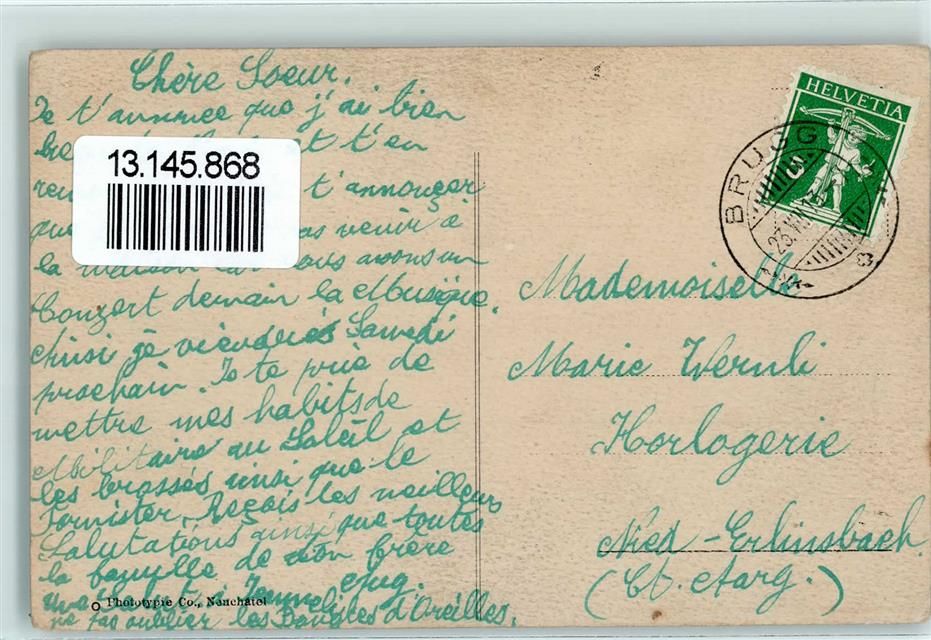 Chère Soeur.
Je t'annonce que j'ai bien
t t'en
t'annonçer
que pas venir à
la maison car nous avons un
Conzert demain la Musique.
Ainsi je viendrés Samedi
prochain. Je te prie de
mettre mes habits de
Militaire au Soleil et
les brossés ainsi que le
Tornister. Reçois les meilleurs
Salutations ainsi que toutes
la famille de ton frère
Aug.
ne pas oublier les Boucles d'Oreilles.
Phototypie Co., Neuchatel
13.145.868
HELVETIA
5
BRUGG
23.VII
Mademoiselle
Marie Wernli
Horlogerie
Nied-Erlinsbach
(Ct. Aarg.)